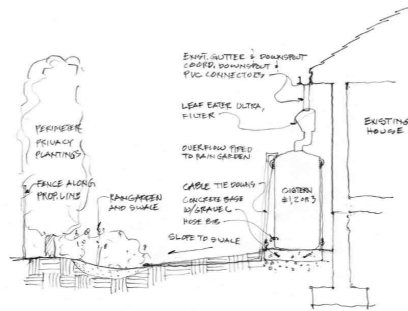 EXIST. GUTTER & DOWNSPOUT
COORD. DOWNSPOUT
PVC CONNECTORS
LEAF EATER ULTRA,
FILTER
PERIMETER
PRIVACY
PLANTINGS
EXISTING
HOUSE
OVERFLOW PIPED
TO RAINGARDEN
FENCE ALONG
PROP. LINE
RAINGARDEN
AND SWALE
CABLE TIE DOWNS
CONCRETE BASE
W/GRAVEL
HOSE BIB
CISTERN
#1, 2 OR 3
SLOPE TO SWALE